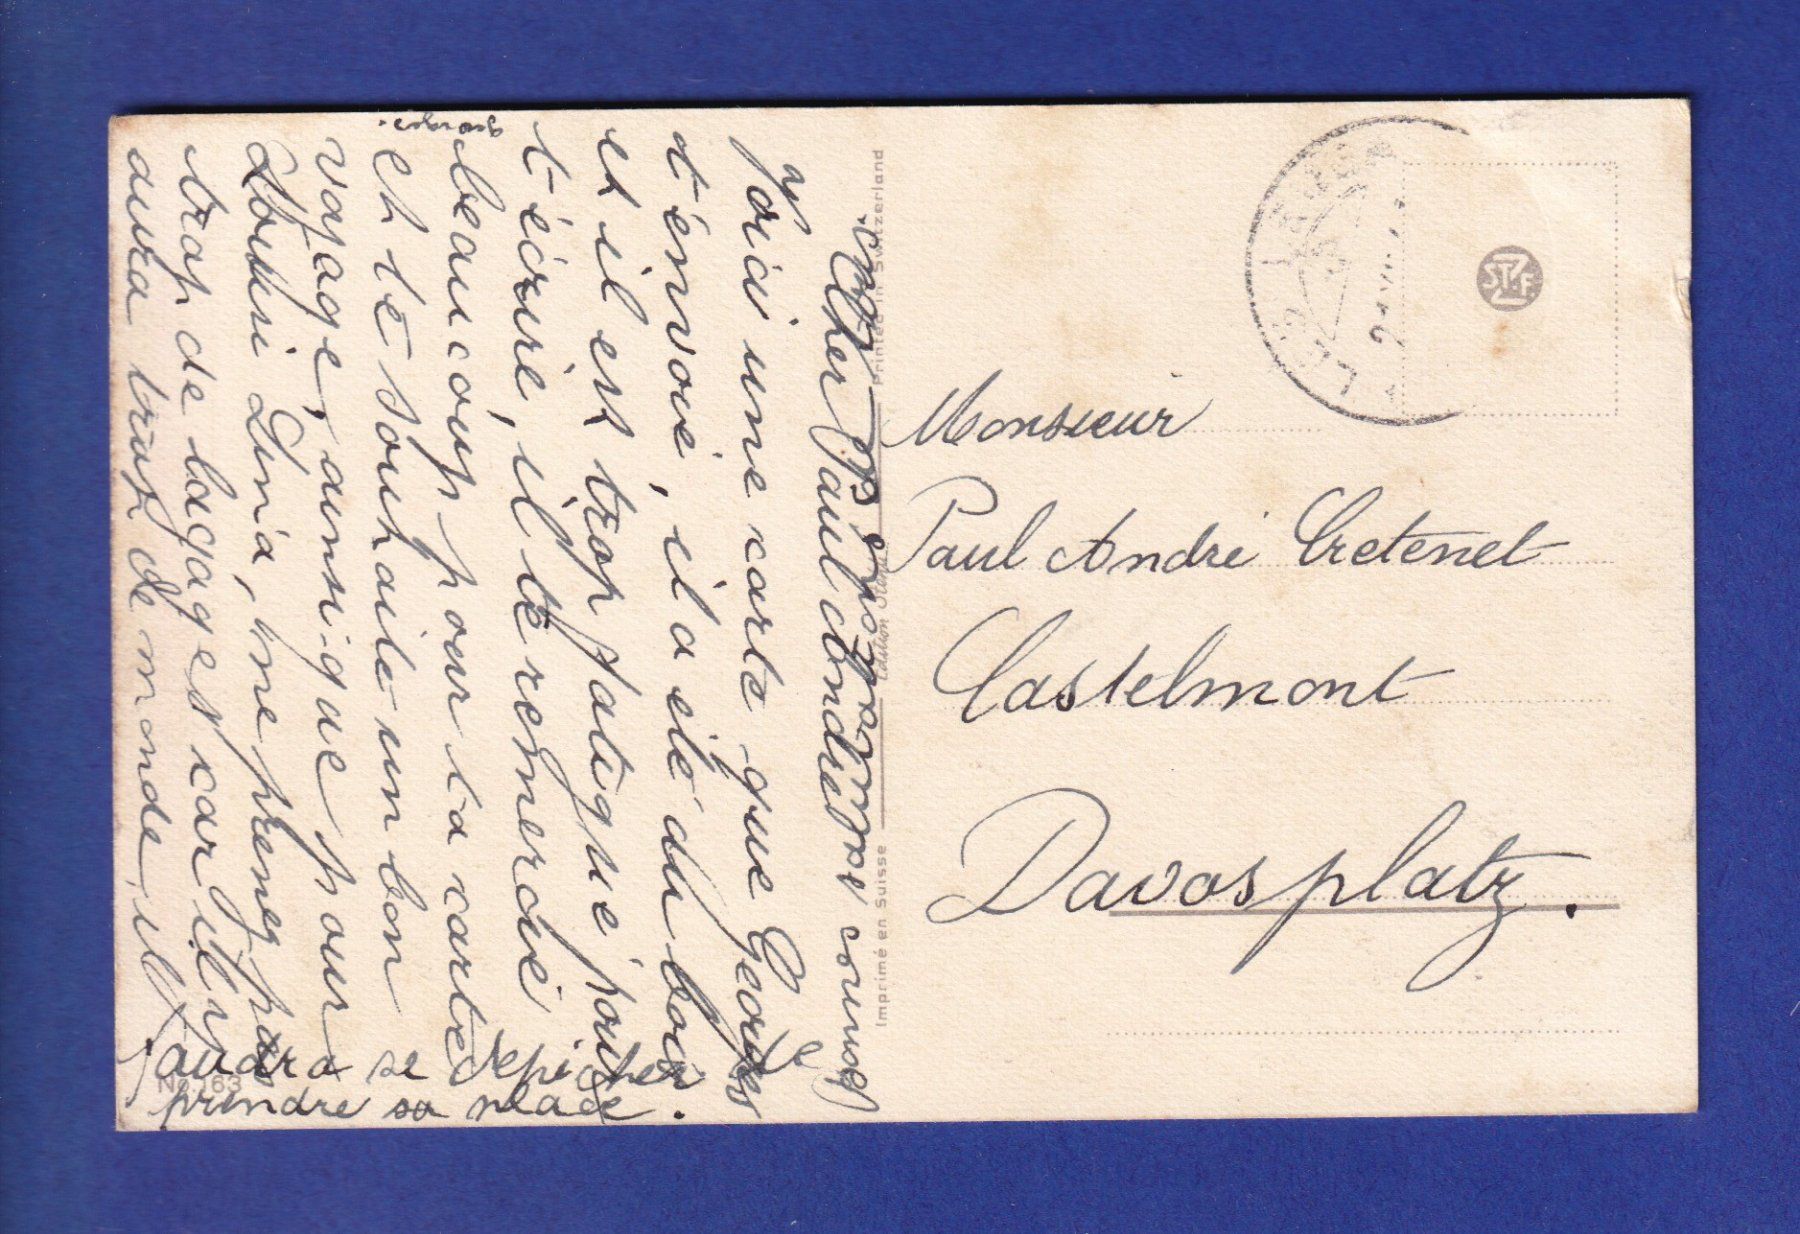 Cher Paul André
Voici une carte que Georges
t'envoié, il a eté du bois
et il est trop fatigué pour
t'écrire, il te remercie
beaucoup pour ta carte
et te souhaite un bon
voyage, ainsi que pour
Dina, ne prenez pas
trop de bagages car il y
aura trop de monde, il
faudra se dépêcher
prendre sa place.
Georges.
Bonne
Imprimé en Suisse
Edition
Printed in Switzerland
No. 163
LES
STZF
Monsieur
Paul André Cretenet
Castelmont
Davosplatz.